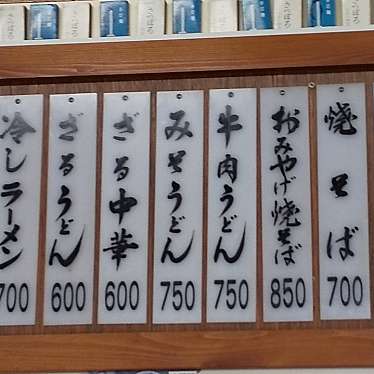 焼そば
700
おみやげ焼そば
850
牛肉うどん
750
みそうどん
750
ざる中華
600
ざるうどん
600
冷しラーメン
700